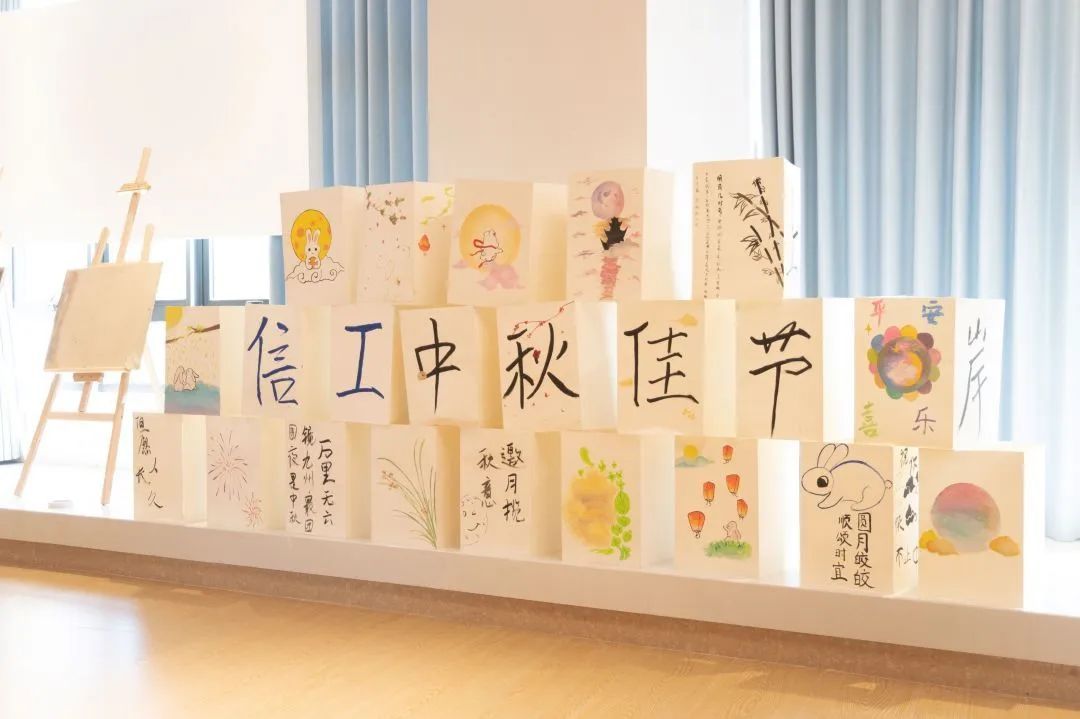 明月几时有
信工中秋佳节
平安
喜乐
岸
但愿
人
长久
万里无云
镜九州最团
圆夜是中秋
邀月揽
秋意
圆月皎皎
顺颂时宜